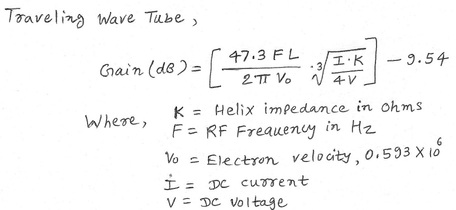 Traveling Wave Tube,
Gain (dB) = [ 47.3 F L / 2 π V₀ · ³√( I·K / 4V ) ] - 9.54
Where, K = Helix impedance in ohms
F = RF Frequency in Hz
V₀ = Electron velocity, 0.593 × 10⁶
I = DC current
V = DC Voltage